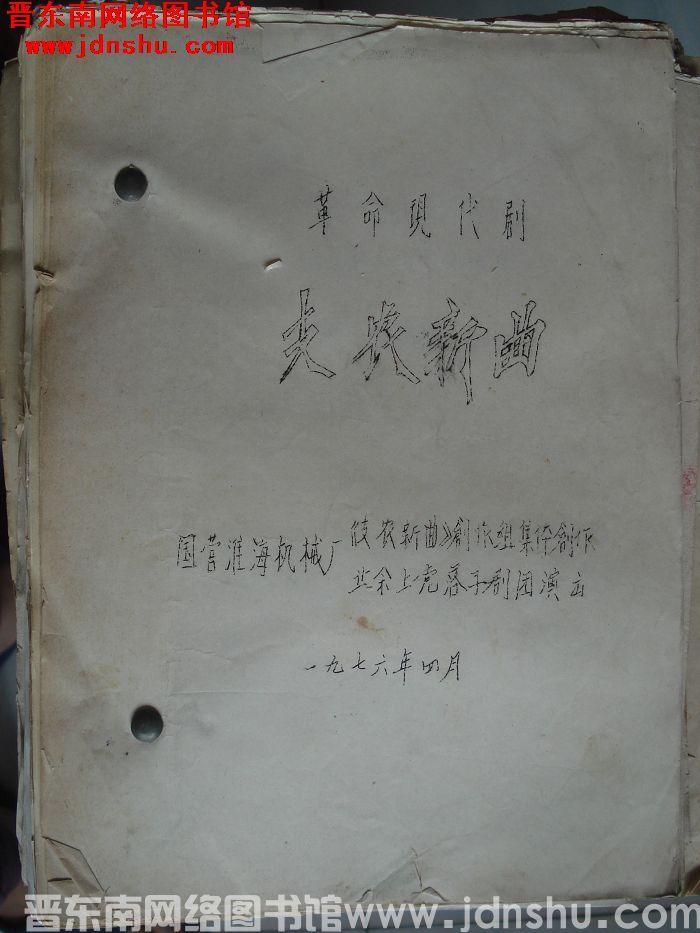 晋东南网络图书馆
www.jdnshu.com
革命現代剧
支农新曲
国营淮海机械厂
《支农新曲》創作组集体創作
业余上党落子剧团演出
一九七六年四月
晋东南网络图书馆www.jdnshu.com